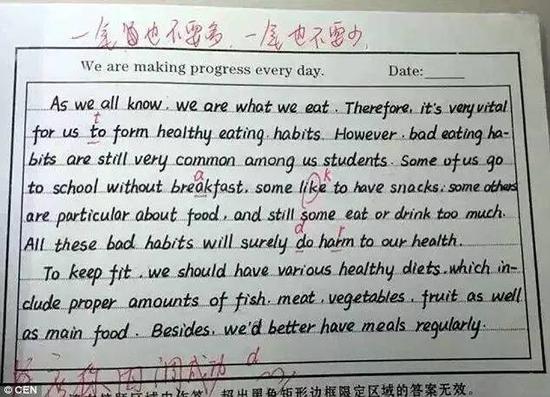 一笔也不要多,一笔也不要少
We are making progress every day. Date:
As we all know, we are what we eat. Therefore, it's very vital
t
for us to form healthy eating habits. However, bad eating ha-
bits are still very common among us students. Some of us go
a k
to school without breakfast, some like to have snacks; some others
are particular about food, and still some eat or drink too much.
d r
All these bad habits will surely do harm to our health.
To keep fit, we should have various healthy diets, which in-
clude proper amounts of fish, meat, vegetables, fruit as well
as main food. Besides, we'd better have meals regularly.
d
超出黑色矩形边框限定区域的答案无效。
© CEN